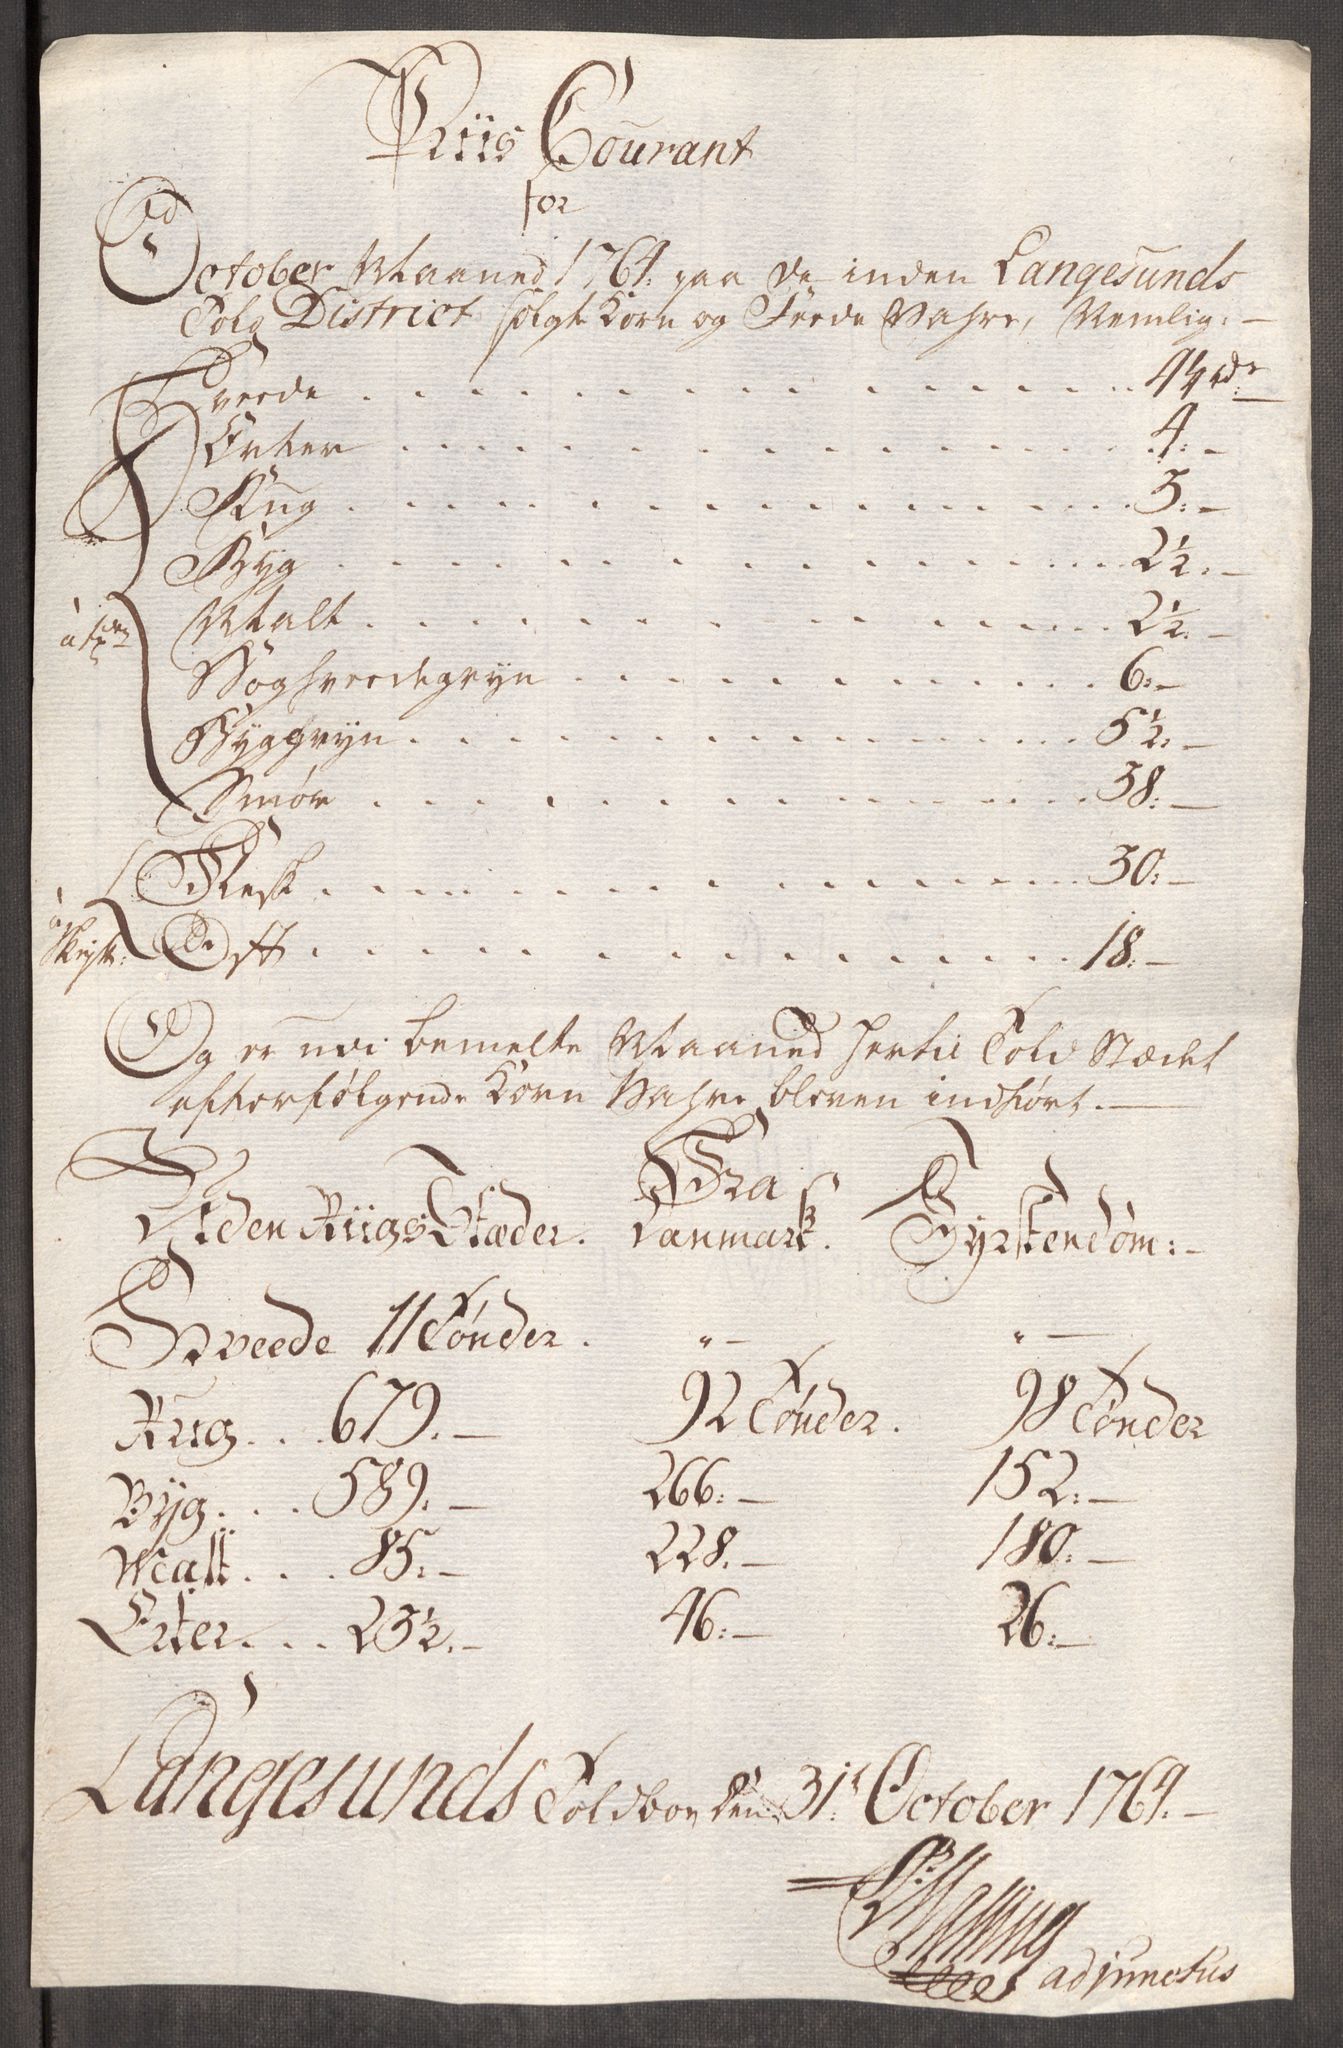 Priis Courant
for
October Maaned 1764. paa de inden Langesunds
Told District solgte Korn og Feede Vahre, Nemlig:
Hveede . . . 4½ rdr
Erter . . . 4:-
Rug . . . 3:-
Byg . . . 2½:-
à Tde Malt . . . 2½:-
Boghveedegryn . . . 6:-
Byggryn . . . 5½:-
Smör . . . 38:-
Flesk . . . 30:-
Ost . . . 18:-
Og er udi bemelte Maaned hertil Told Stædet
efterfølgende Korn Vahre bleven indført.
Fra
Uden Riigs Stæder. Danmark. Fyrstendøm:-
Hveede 11 Tønder. "- "-
Rug . . . 679.- 92 Tønder. 98 Tønder
Byg . . . 589.- 266:- 152:-
Malt . . . 85:- 228.- 180:-
Erter . . . 23½.- 46:- 26:-
Langesunds Toldbod den 31t October 1764.-
adjunctus